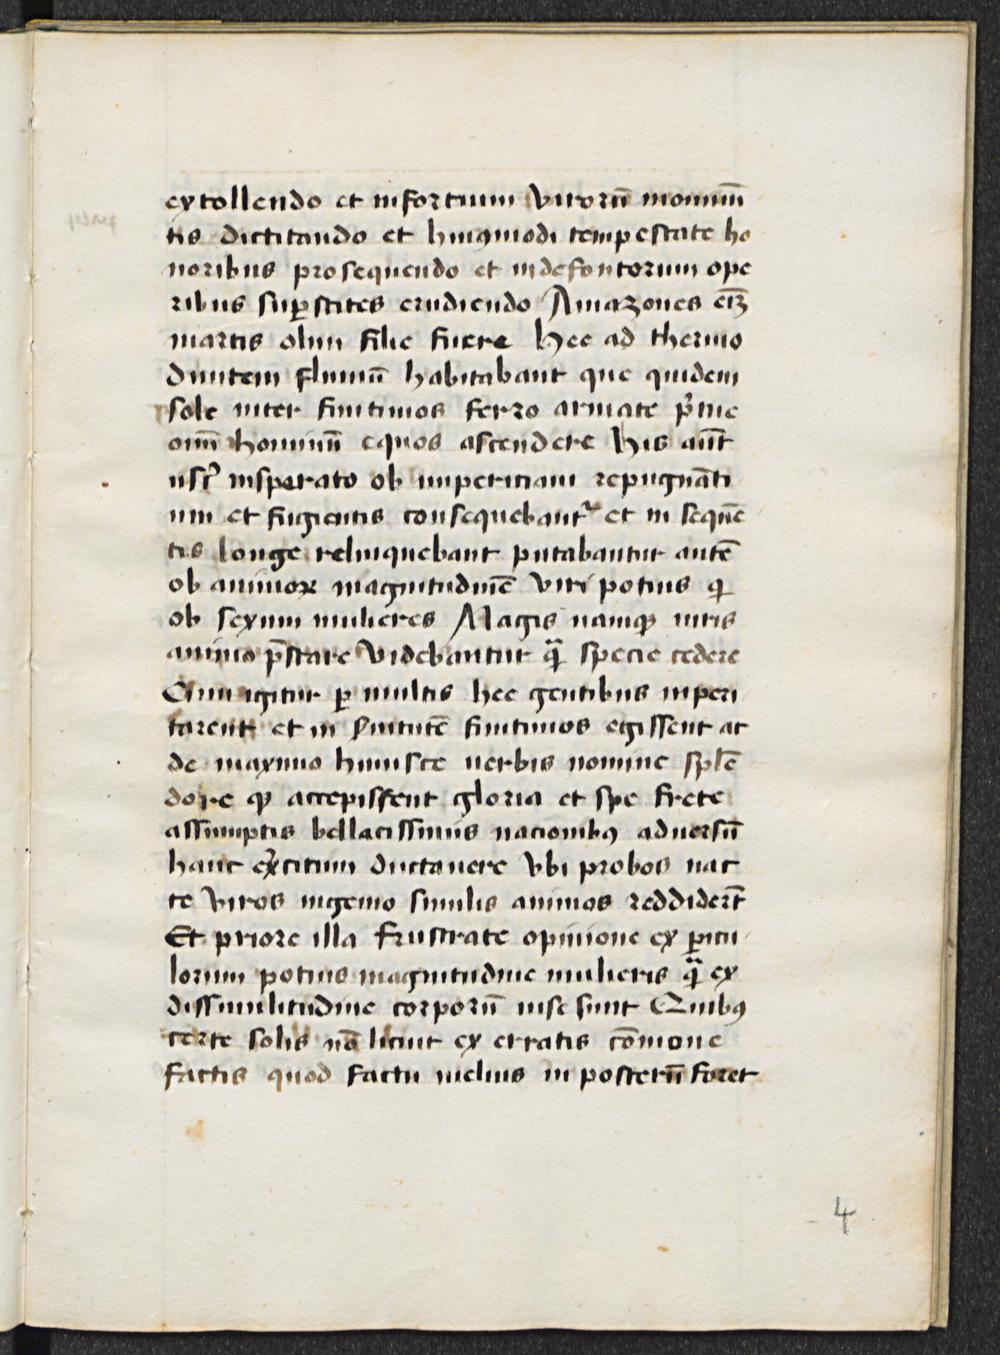 extollendo et infortium virorū monim̄
tis dictitando et huiqmodi tempestate ho
noribus prosequendo et indefontorum ope
ribus suꝑstites erudiendo Amazones etꝫ
martis olim filie fuere hee ad thermo
duntem flumū habitabant que quidem
sole inter finitimos ferro armate p̄me
om̄ hominū equos ascendere his aūt
insperato ob imperitiam repugnāti
um et fugientis consequebantᷣ et in sequē
tis longe relinquebant putabantur autē
ob animoꝝ magnitudinē viri potius
ob sexum mulieres Magis namqꝫ uiris
animo p̄stare videbantur q̄ specie cedere
Cum igitur ꝑ multis hee gentibus inperi
tarent et in ẜuitutē finitimos egissent ac
de maximo huiusce uerbis nomine splē
dore qꝫ accepissent gloria et spe frete
assumptis bellacissimis nacionibꝯ aduersū
hanc ex̄citum ductauere vbi probos nac
te viros ingenio similis animos reddider̄t
Et priore illa frustrate opinione ex ꝑicu
lorum potius magnitudine mulieris q̄ ex
dissimilitudine corporū uise sunt Quibꝯ
certe solis nō licuit ex erratis cōmone
factis quod factu melius in posterū foret
4